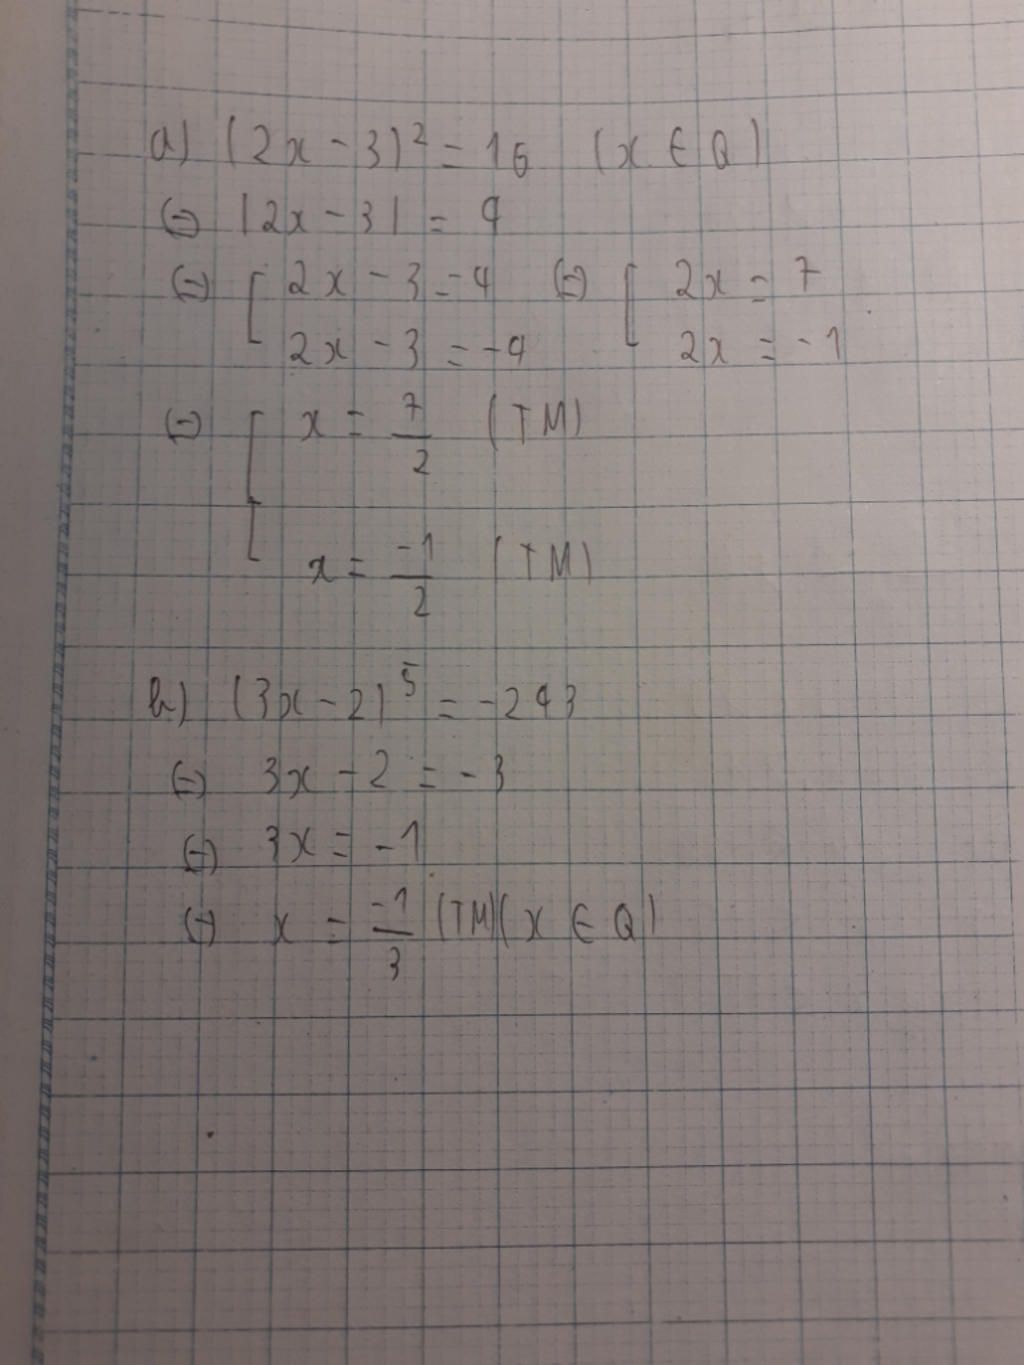 a) (2x - 3)² = 16 (x ∈ Q)
⇔ |2x - 3| = 4
⇔ [ 2x - 3 = 4 ⇔ [ 2x = 7
2x - 3 = -4 2x = -1
⇔ [ x = 7/2 (TM)
x = -1/2 (TM)
b) (3x - 2)⁵ = -243
⇔ 3x - 2 = -3
⇔ 3x = -1
⇔ x = -1/3 (TM) (x ∈ Q)